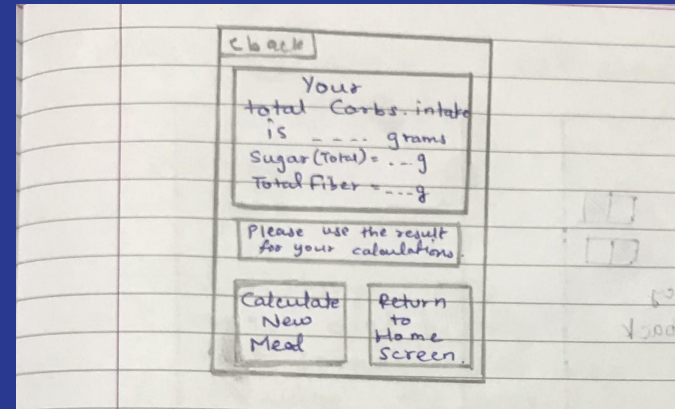 < back
Your
total Carbs. intake
is ---- grams
Sugar (Total) = ---g
Total Fiber = ---g
Please use the result
for your calculations.
Calculate
New
Meal
Return
to
Home
Screen.